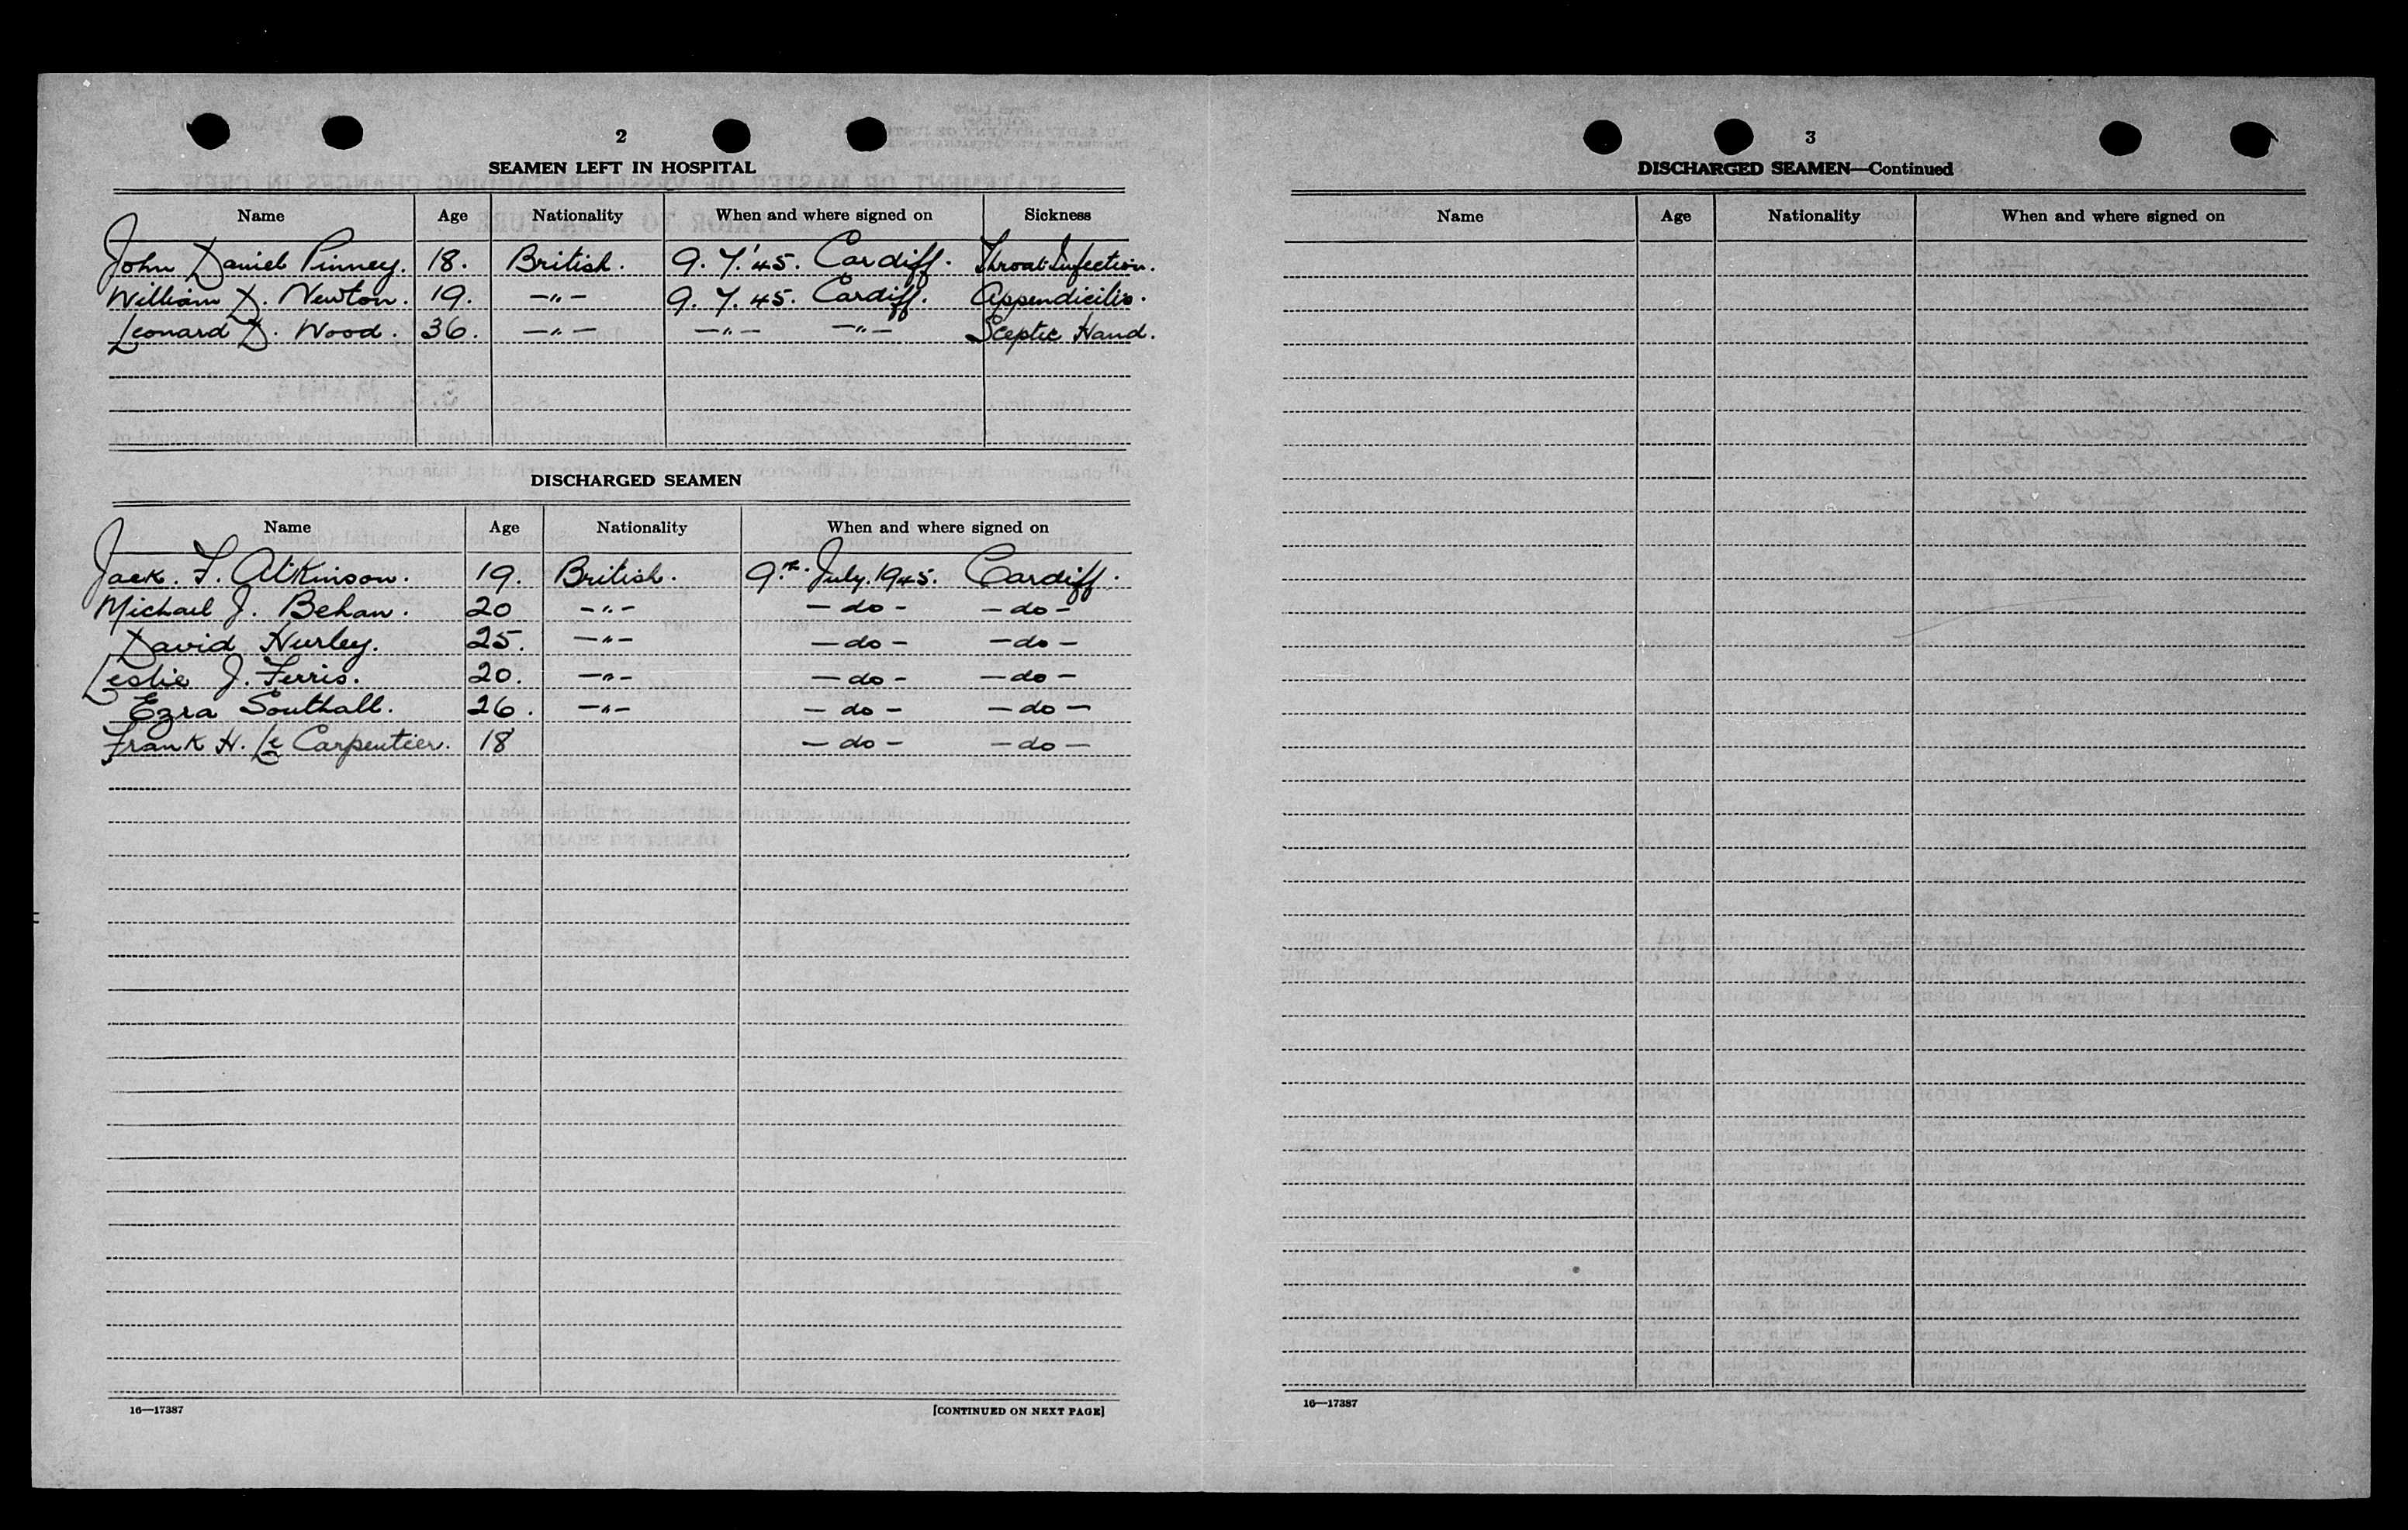 2
SEAMEN LEFT IN HOSPITAL
Name Age Nationality When and where signed on Sickness
John Daniel Pinney. 18. British. 9. 7.'45. Cardiff. Throat Infection.
William D. Newton. 19. —"— 9. 7. 45. Cardiff. Appendicitis.
Leonard D. Wood. 36. —"— —"— —"— Sceptic Hand.
DISCHARGED SEAMEN
Name Age Nationality When and where signed on
Jack. F. Atkinson. 19. British. 9.th July. 1945. Cardiff.
Michael J. Behan. 20 —"— —do— —do—
David Hurley. 25. —"— —do— —do—
Leslie J. Ferris. 20. —"— —do— —do—
Ezra Southall. 26. —"— —do— —do—
Frank H. Le Carpentier. 18 —do— —do—
16—17387 [CONTINUED ON NEXT PAGE]
3
DISCHARGED SEAMEN—Continued
Name Age Nationality When and where signed on
16—17387